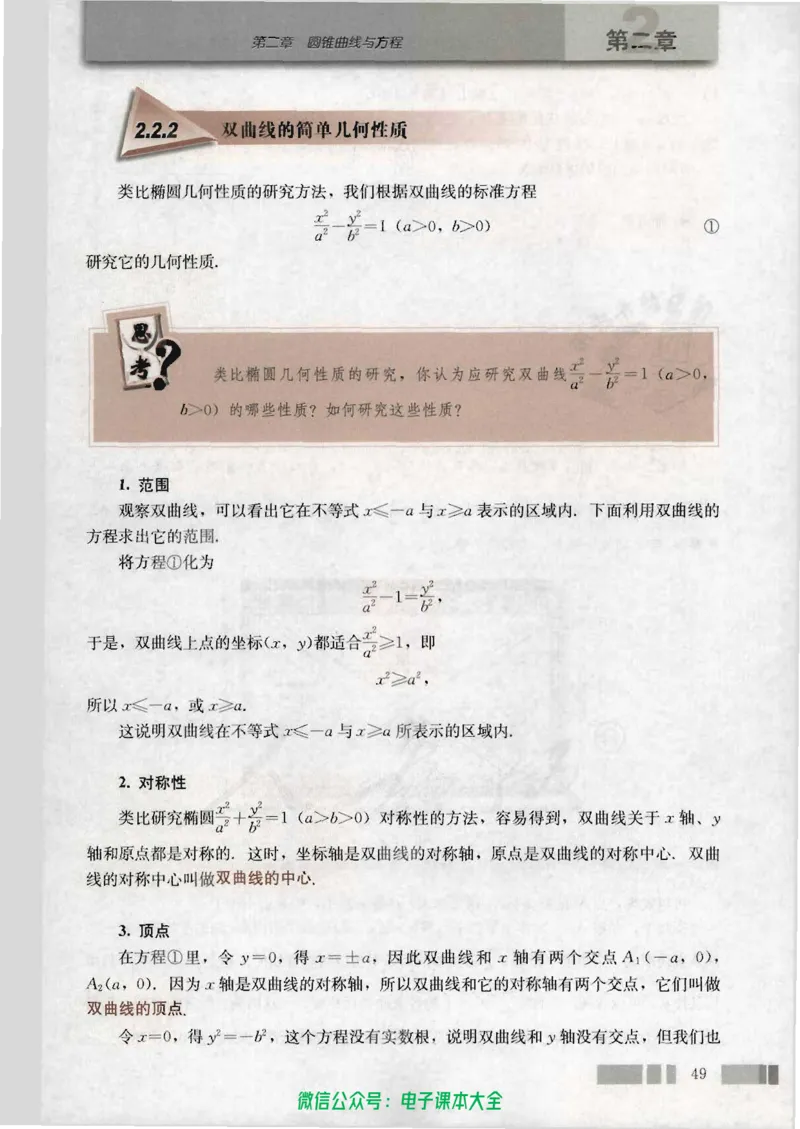 第二章 圆锥曲线与方程
第二章
2.2.2 双曲线的简单几何性质
类比椭圆几何性质的研究方法，我们根据双曲线的标准方程
x²/a²−y²/b²=1（a>0，b>0） ①
研究它的几何性质.
思考?
类比椭圆几何性质的研究，你认为应研究双曲线x²/a²−y²/b²=1（a>0，
b>0）的哪些性质？如何研究这些性质？
1. 范围
观察双曲线，可以看出它在不等式 x≤−a 与 x≥a 表示的区域内. 下面利用双曲线的
方程求出它的范围.
将方程①化为
x²/a²−1=y²/b²，
于是，双曲线上点的坐标(x，y)都适合x²/a²≥1，即
x²≥a²，
所以 x≤−a，或 x≥a.
这说明双曲线在不等式 x≤−a 与 x≥a 所表示的区域内.
2. 对称性
类比研究椭圆x²/a²+y²/b²=1（a>b>0）对称性的方法，容易得到，双曲线关于 x 轴、y
轴和原点都是对称的. 这时，坐标轴是双曲线的对称轴，原点是双曲线的对称中心. 双曲
线的对称中心叫做双曲线的中心.
3. 顶点
在方程①里，令 y=0，得 x=±a，因此双曲线和 x 轴有两个交点 A₁(−a，0)，
A₂(a，0). 因为 x 轴是双曲线的对称轴，所以双曲线和它的对称轴有两个交点，它们叫做
双曲线的顶点.
令 x=0，得 y²=−b²，这个方程没有实数根，说明双曲线和 y 轴没有交点，但我们也
49
微信公众号：电子课本大全